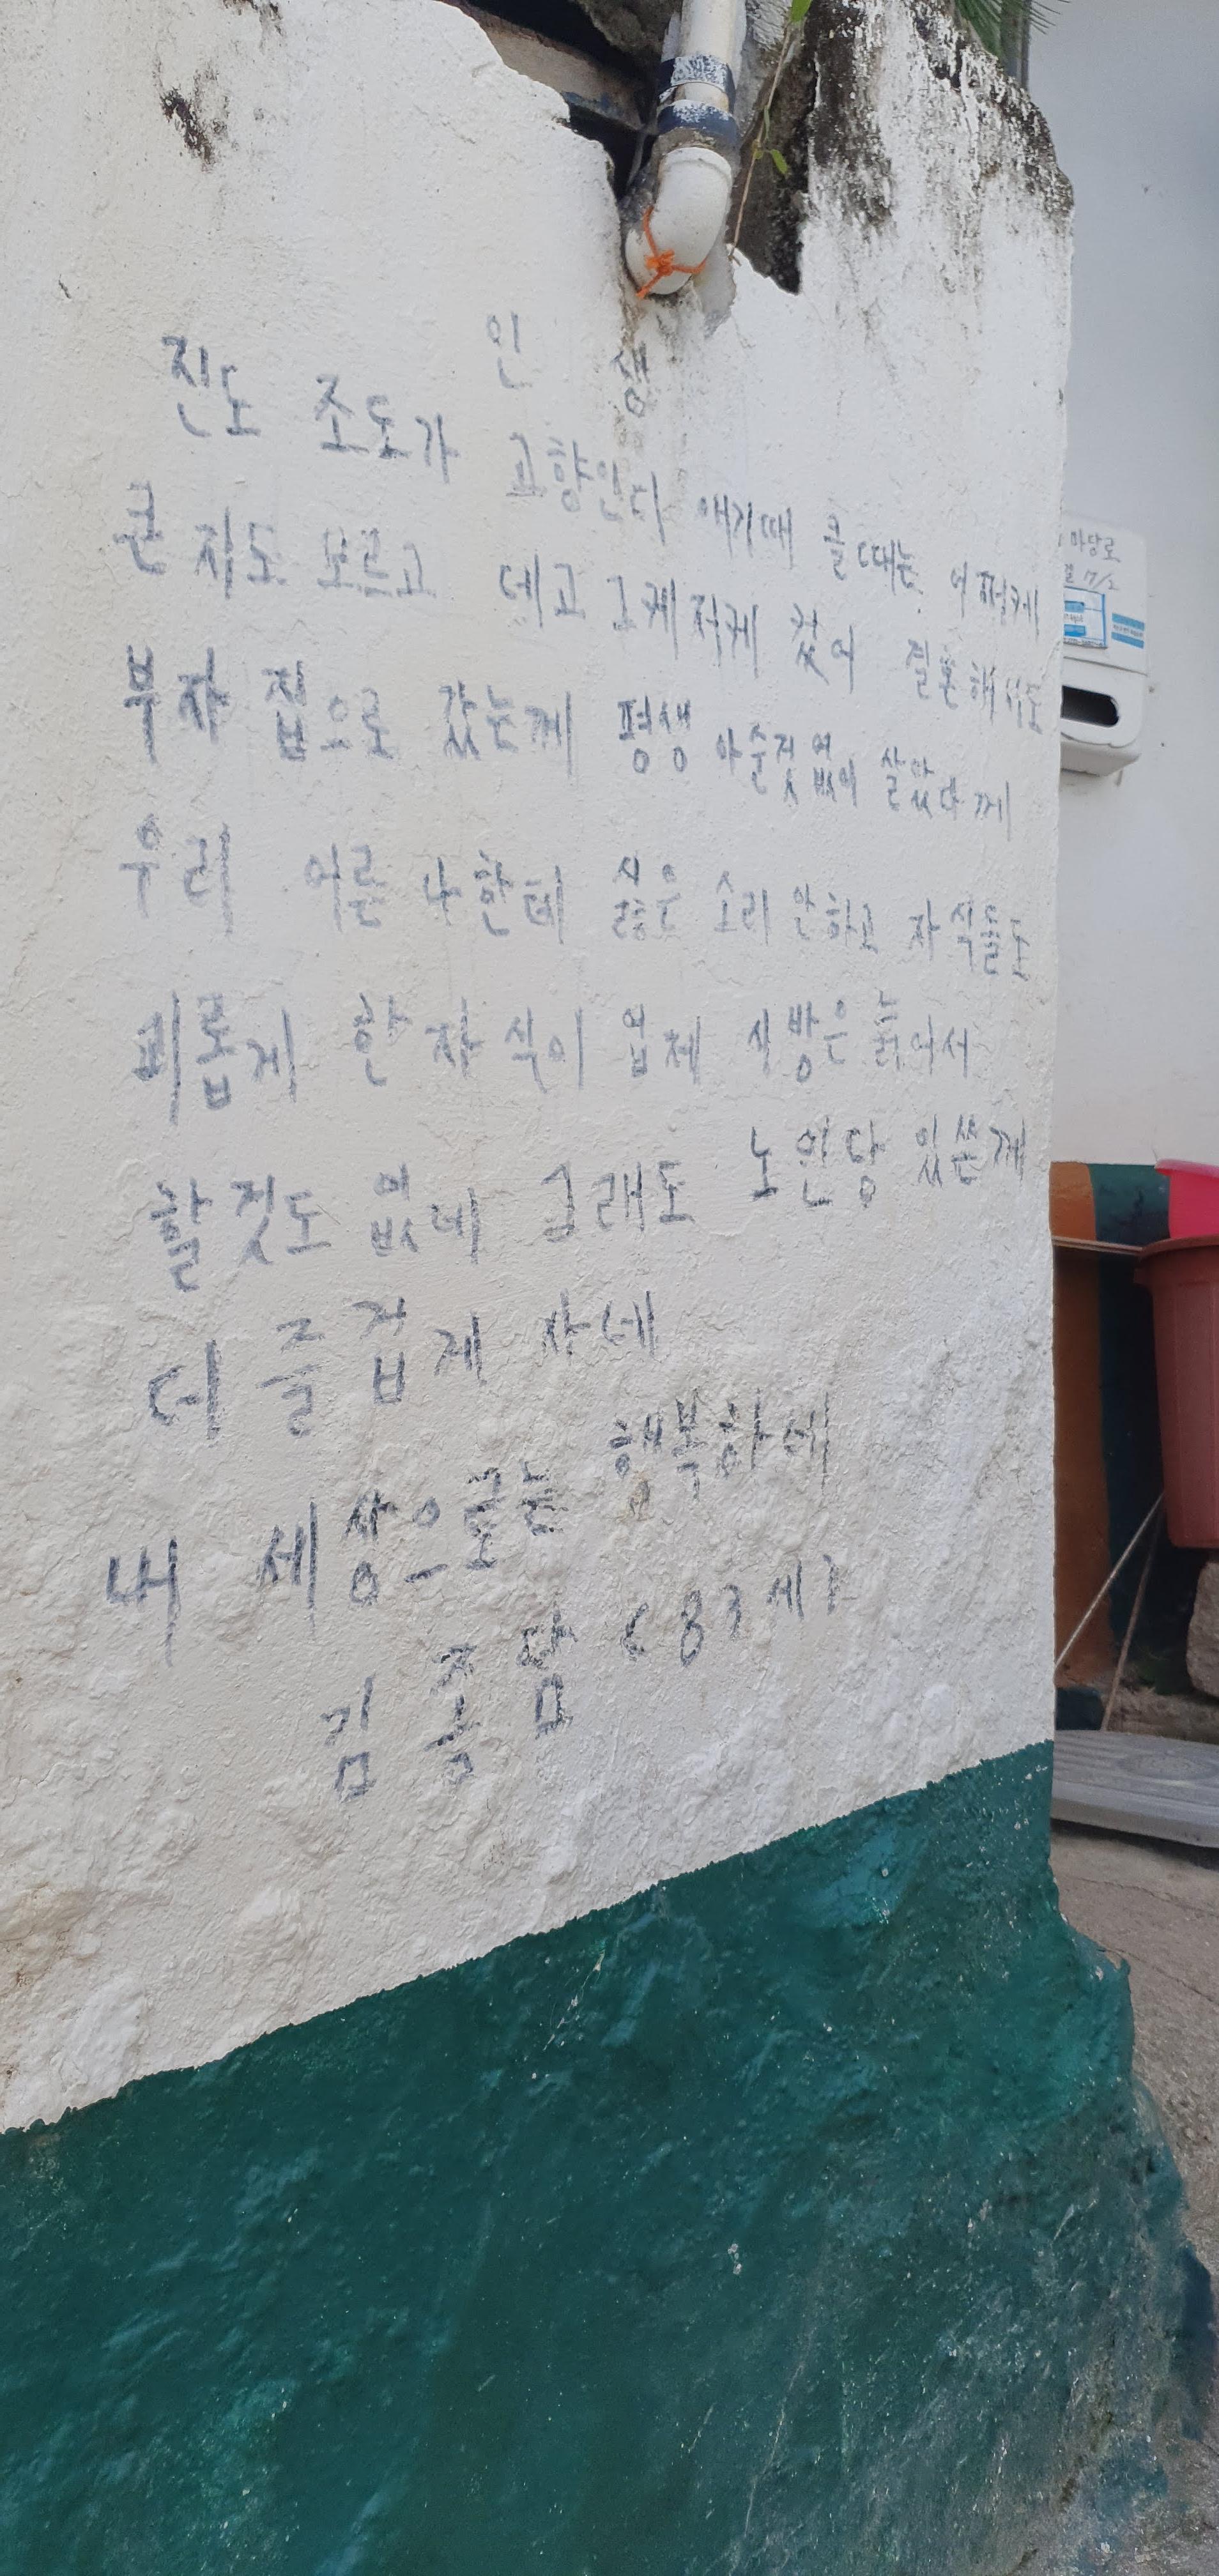 인 생
진도 조도가 고향인디 애기때 클때는 어쩌케
큰 지도 모르고 데고 그케저케 컸어 결혼해서도
부자 집으로 갔는께 평생 아순것 없이 살았다께
우리 어른 나한테 싫은 소리 안하고 자식들도
괴롭게 한 자식이 업제 시방은 늙어서
할 것도 없네 그래도 노인당 있쓴께
더 즐겁제 사네
내 세상으로는 행복하네
김종담 (83세)
마당로